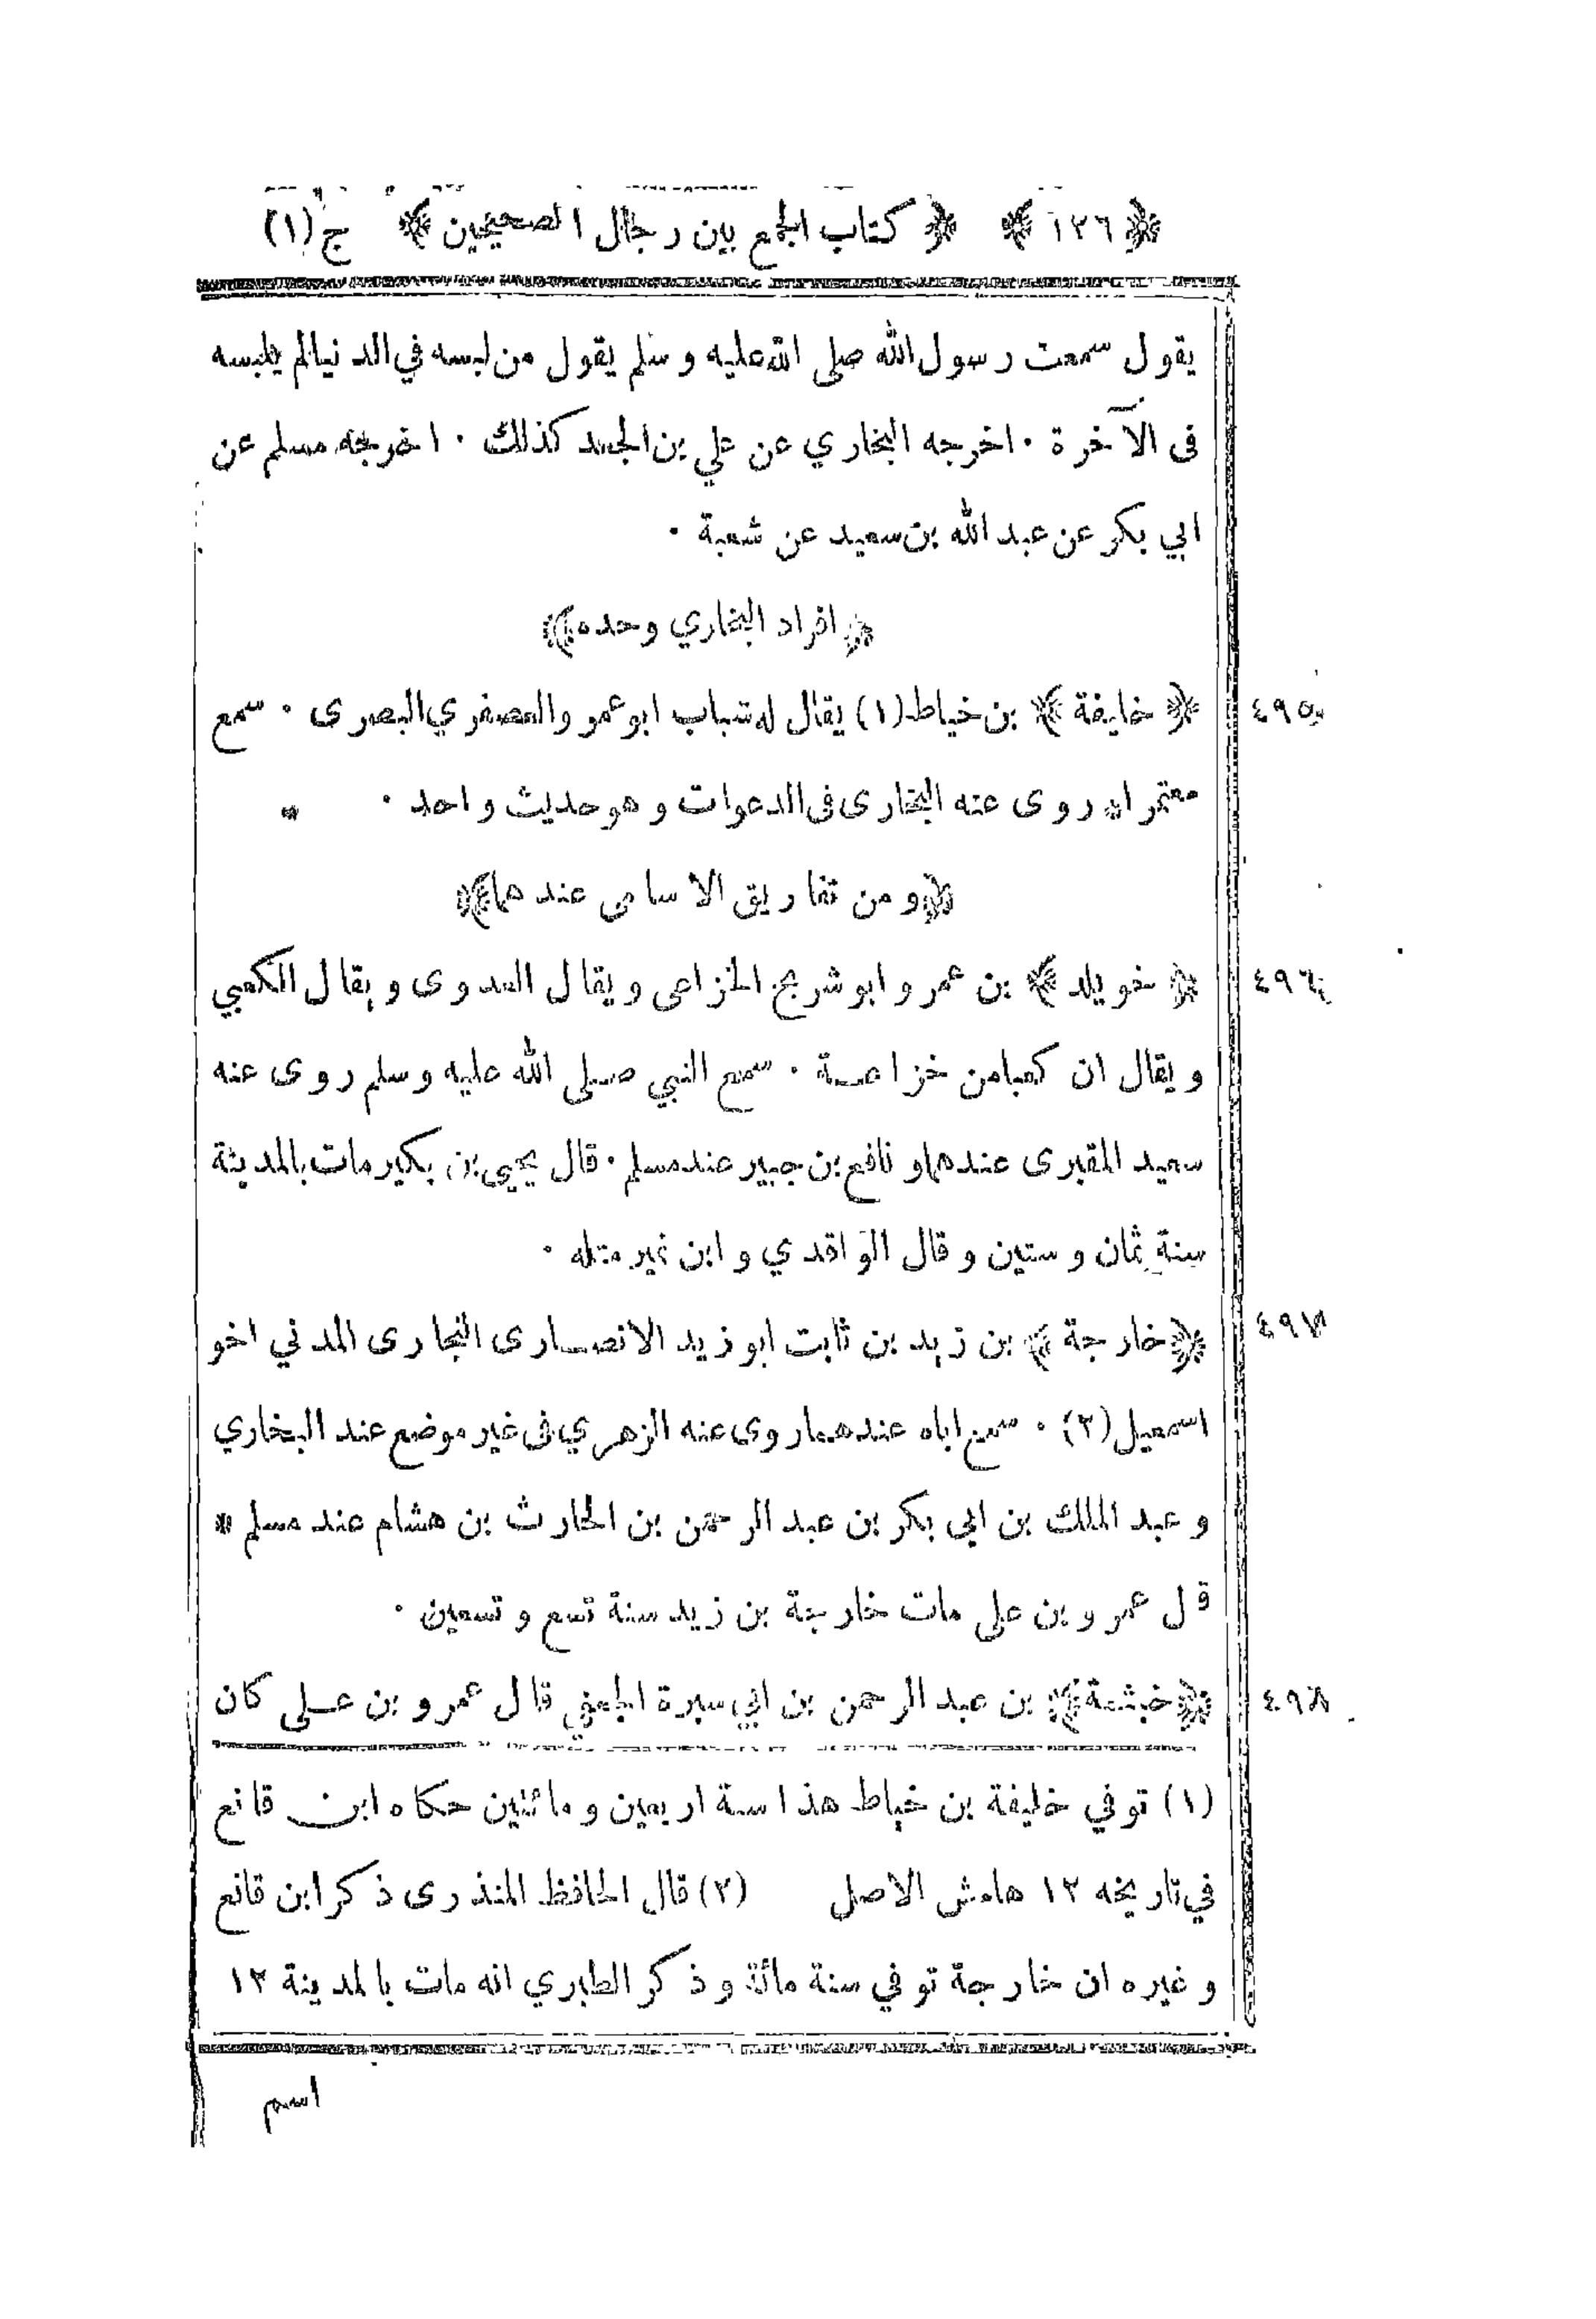 ﴿ ١٢٦ ﴾ ﴿ كتاب الجمع بين رجال الصحيحين ﴾ ج (١)
يقول سمعت رسول الله صلى الله عليه وسلم يقول من لبسه في الدنيا لم يلبسه
فى الآخرة · اخرجه البخاري عن علي بن الجعد كذلك · اخرجه مسلم عن
ابي بكر عن عبد الله بن سعيد عن شعبة ·
﴿ افراد البخاري وحده ﴾
٤٩٥ ﴿ خليفة ﴾ بن خياط (١) يقال له شباب ابو عمرو العصفري البصرى · سمع
معتمرا * روى عنه البخارى فى الدعوات وهو حديث واحد · *
﴿ ومن تفاريق الاسامى عندهما ﴾
٤٩٦ ﴿ خويلد ﴾ بن عمرو ابو شريح الخزاعى ويقال العدوى ويقال الكعبي
ويقال ان كعبا من خزاعة · سمع النبي صلى الله عليه وسلم روى عنه
سعيد المقبرى عندهما و نافع بن جبير عند مسلم · قال يحيى بن بكير مات بالمدينة
سنة ثمان وستين وقال الواقدي وابن نمير مثله ·
٤٩٧ ﴿ خارجة ﴾ بن زيد بن ثابت ابو زيد الانصارى النجارى المدني اخو
اسمعيل (٢) · سمع اباه عندهما روى عنه الزهري فى غير موضع عند البخاري
وعبد الملك بن ابي بكر بن عبد الرحمن بن الحارث بن هشام عند مسلم *
قال عمرو بن على مات خارجة بن زيد سنة تسع وتسعين ·
٤٩٨ ﴿ خيثمة ﴾ بن عبد الرحمن بن ابي سبرة الجعفي قال عمرو بن على كان
(١) توفي خليفة بن خياط هذا سنة اربعين ومائتين حكاه ابن قانع
في تاريخه ١٢ هامش الاصل (٢) قال الحافظ المنذرى ذكر ابن قانع
وغيره ان خارجة توفي سنة مائة وذكر الطبري انه مات بالمدينة ١٢
اسم